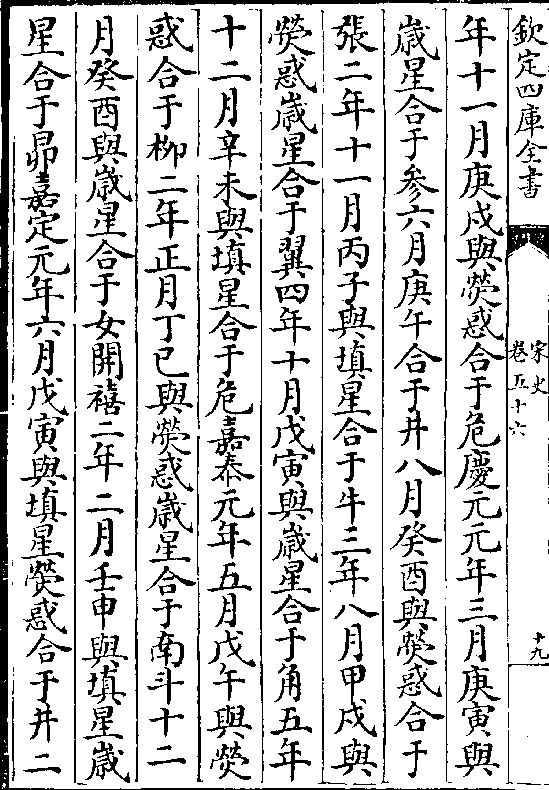 欽定四庫全書
宋史
卷五十六
十九
年十一月庚戌與熒惑合于危慶元元年三月庚寅與
歲星合于參六月庚午合于井八月癸酉與熒惑合于
張二年十一月丙子與填星合于牛三年八月甲戌與
熒惑歲星合于翼四年十月戊寅與歲星合于角五年
十二月辛未與填星合于危嘉泰元年五月戊午與熒
惑合于柳二年正月丁巳與熒惑歲星合于南斗十二
月癸酉與歲星合于女開禧二年二月壬申與填星歲
星合于昴嘉定元年六月戊寅與填星熒惑合于井二